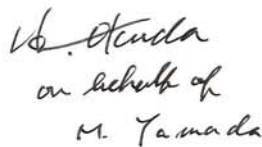 H. Okuda
on behalf of
M. Yamada